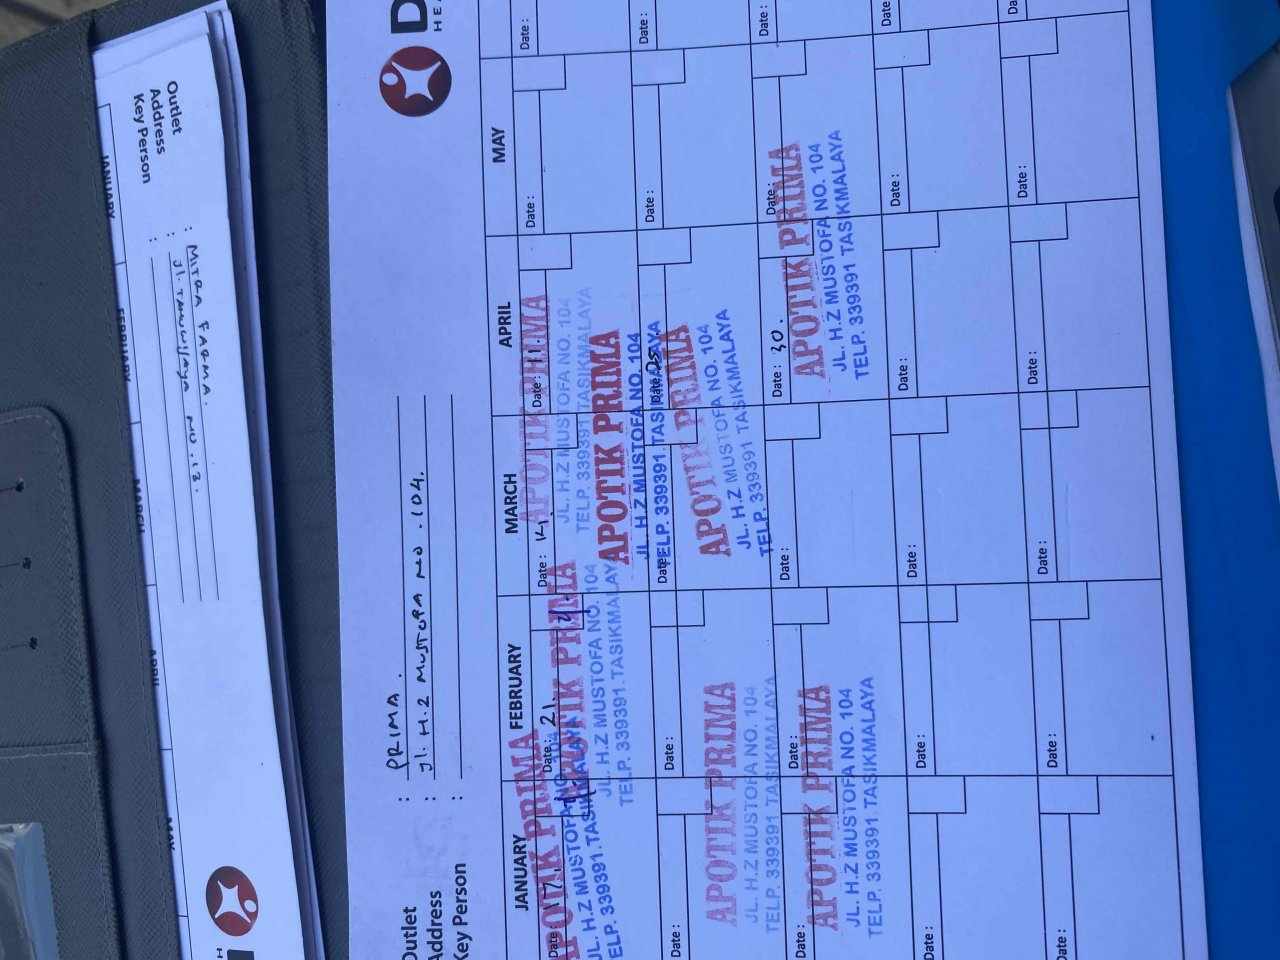 Outlet : PRIMA.
Address : Jl. H.Z MUSTOFA NO. 104.
Key Person :
JANUARY FEBRUARY MARCH APRIL MAY
Date : 17. Date : 21. Date : 14. Date : 11. Date : Date :
APOTIK PRIMA
JL. H.Z MUSTOFA NO. 104
TELP. 339391 TASIKMALAYA
APOTIK PRIMA
JL. H.Z MUSTOFA NO. 104
TELP. 339391 TASIKMALAYA
APOTIK PRIMA
JL. H.Z MUSTOFA NO. 104
TELP. 339391 TASIKMALAYA
APOTIK PRIMA
JL. H.Z MUSTOFA NO. 104
TELP. 339391 TASIKMALAYA
Date : Date : Date : Date : Date : Date :
APOTIK PRIMA
JL. H.Z MUSTOFA NO. 104
TELP. 339391 TASIKMALAYA
APOTIK PRIMA
JL. H.Z MUSTOFA NO. 104
TELP. 339391 TASIKMALAYA
Date : Date : Date : Date : 30. Date : Date :
APOTIK PRIMA
JL. H.Z MUSTOFA NO. 104
TELP. 339391 TASIKMALAYA
APOTIK PRIMA
JL. H.Z MUSTOFA NO. 104
TELP. 339391 TASIKMALAYA
Date : Date : Date : Date : Date : Date :
Date : Date : Date : Date : Date :
Outlet : MITRA FARMA.
Address : Jl. NO. 12.
Key Person :
JANUARY FEBRUARY MARCH APRIL MAY